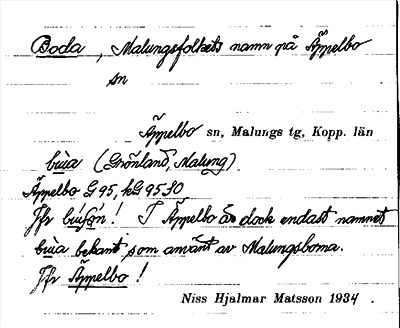 Boda, Malungsfolkets namn på Äppelbo
sn
Äppelbo sn, Malungs tg, Kopp. län
bùa (Grönland, Malung)
Äppelbo G 95, hG 95 30
Jfr ! I Äppelbo är dock endast namnet
bùa bekant som använt av Malungsborna.
Jfr Äppelbo!
Niss Hjalmar Matsson 1934.